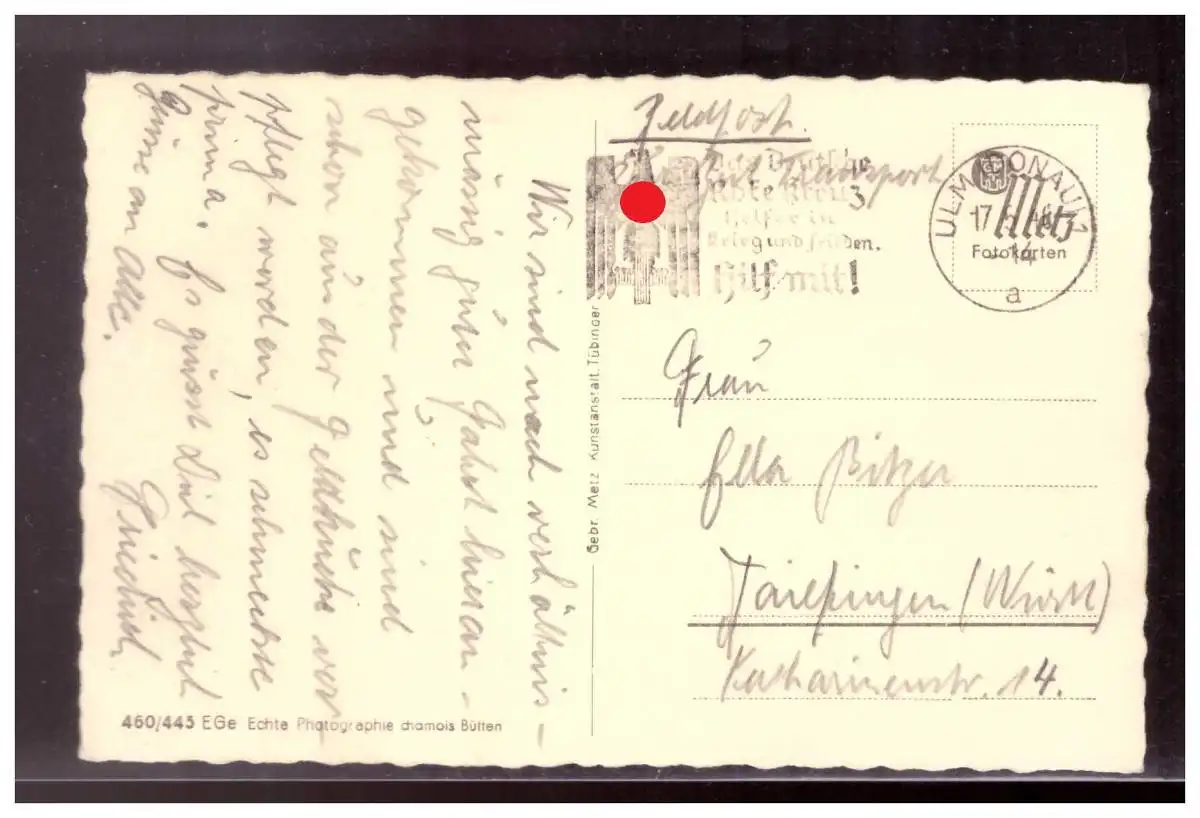 Feldpost.
Transport
Das Deutsche
Rote Kreuz
Helfer in
Krieg und Frieden.
Hilf mit!
ULM DONAU 1
17.
a
Metz
Fotokarten
Frau
Ella Bitzer
Tailfingen (Württ)
Katharinenstr. 14.
Gebr. Metz Kunstanstalt. Tübingen
Wir sind nach verhältnis-
mässig guter Fahrt hier an-
gekommen und sind
schon aus der Feldküche ver-
pflegt worden, es schmeckte
prima. Es grüsst Dich herzlich
Friedrich
Grüsse an alle.
460/445 EGe Echte Photographie chamois Bütten